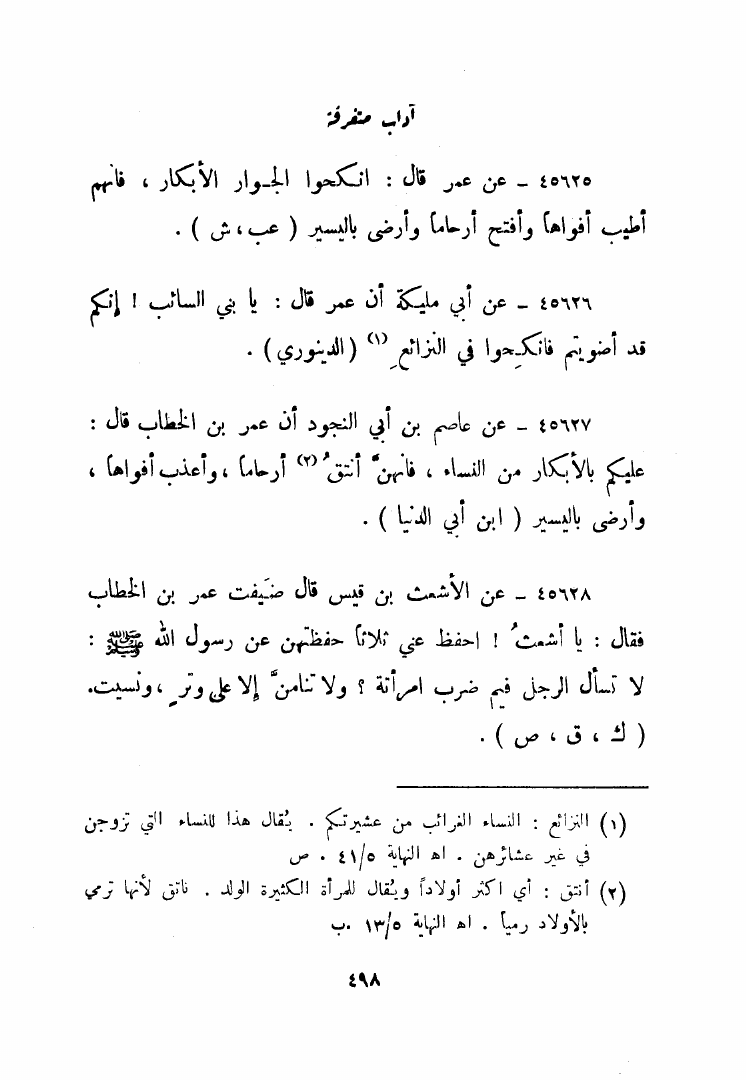 آداب متفرقة
٤٥٦٢٥ – عن عمر قال : انكحوا الجوار الأبكار ، فانهم
أطيب أفواهاً وأفتح أرحاماً وأرضى باليسير ( عب ، ش ) .
٤٥٦٢٦ – عن أبي مليكة أن عمر قال : يا بني السائب ! إنكم
قد أضويتم فانكِحوا في النزائعِ (١) ( الدينوري ) .
٤٥٦٢٧ – عن عاصم بن أبي النجود أن عمر بن الخطاب قال :
عليكم بالأبكار من النساء ، فانهنَّ أنتقُ (٢) أرحاماً ، وأعذب أفواهاً ،
وأرضى باليسير ( ابن أبي الدنيا ) .
٤٥٦٢٨ – عن الأشعث بن قيس قال ضَيفت عمر بن الخطاب
فقال : يا أشعثُ ! احفظ عني ثلاثاً حفظتهن عن رسول الله ﷺ :
لا تسأل الرجل فيم ضرب امرأتة ؟ ولا تنامنَّ إلا على وترٍ ، ونسيت.
( ك ، ق ، ص ) .
(١) النزائع : النساء الغرائب من عشيرتكم . يُقال هذا للنساء التي تزوجن
في غير عشائرهن . اه النهاية ٤١/٥ . ص
(٢) أنتق : أي اكثر أولاداً ويُقال للمرأة الكثيرة الولد . ناتق لأنها ترمي
بالأولاد رمياً . اه النهاية ١٣/٥ .ب
٤٩٨